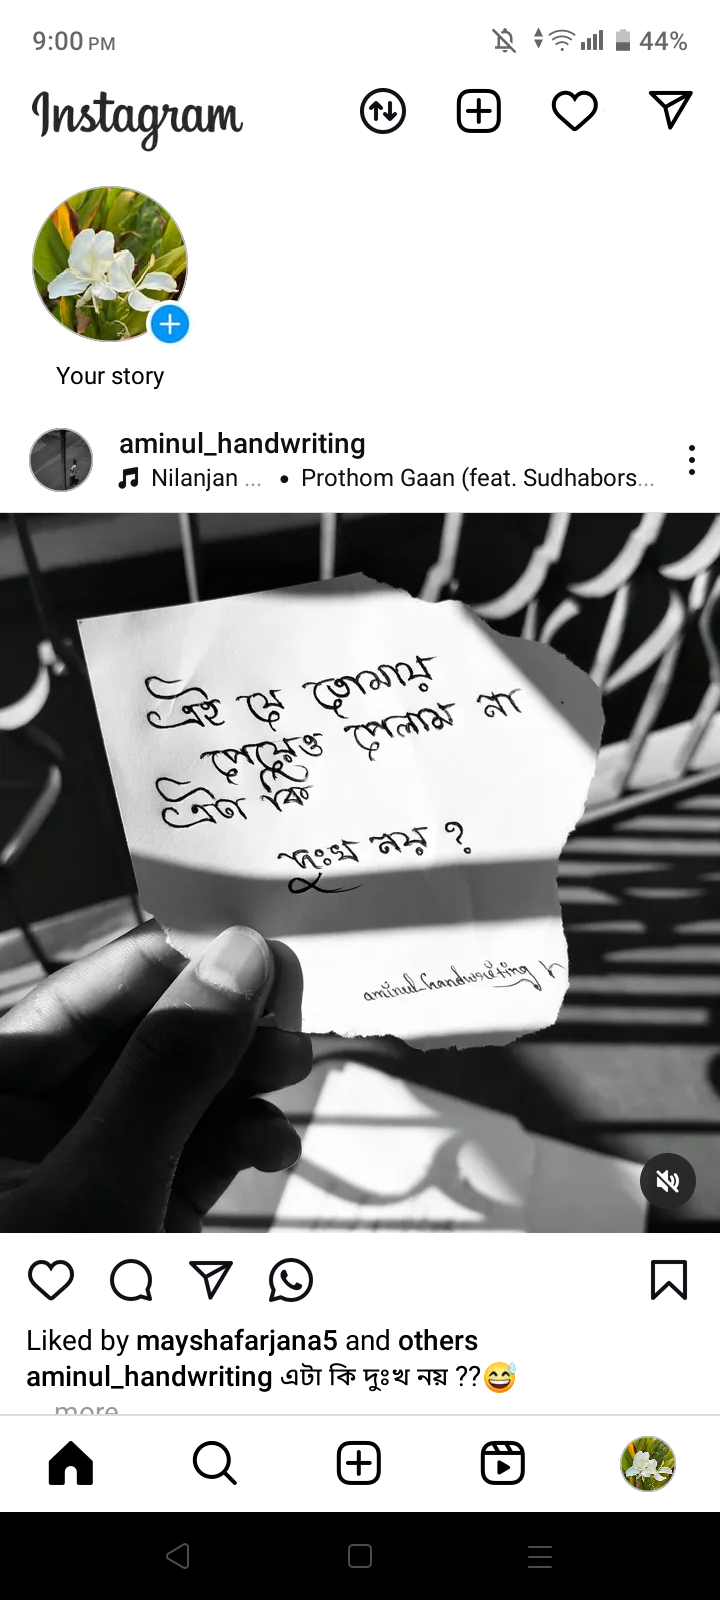 9:00 PM
44%
Instagram
Your story
aminul_handwriting
Nilanjan ... • Prothom Gaan (feat. Sudhabors...
এই যে তোমায়
পেয়েও পেলাম না
এটা কি
দুঃখ নয় ?
aminul_handwriting
Liked by mayshafarjana5 and others
aminul_handwriting এটা কি দুঃখ নয় ??😅
... more